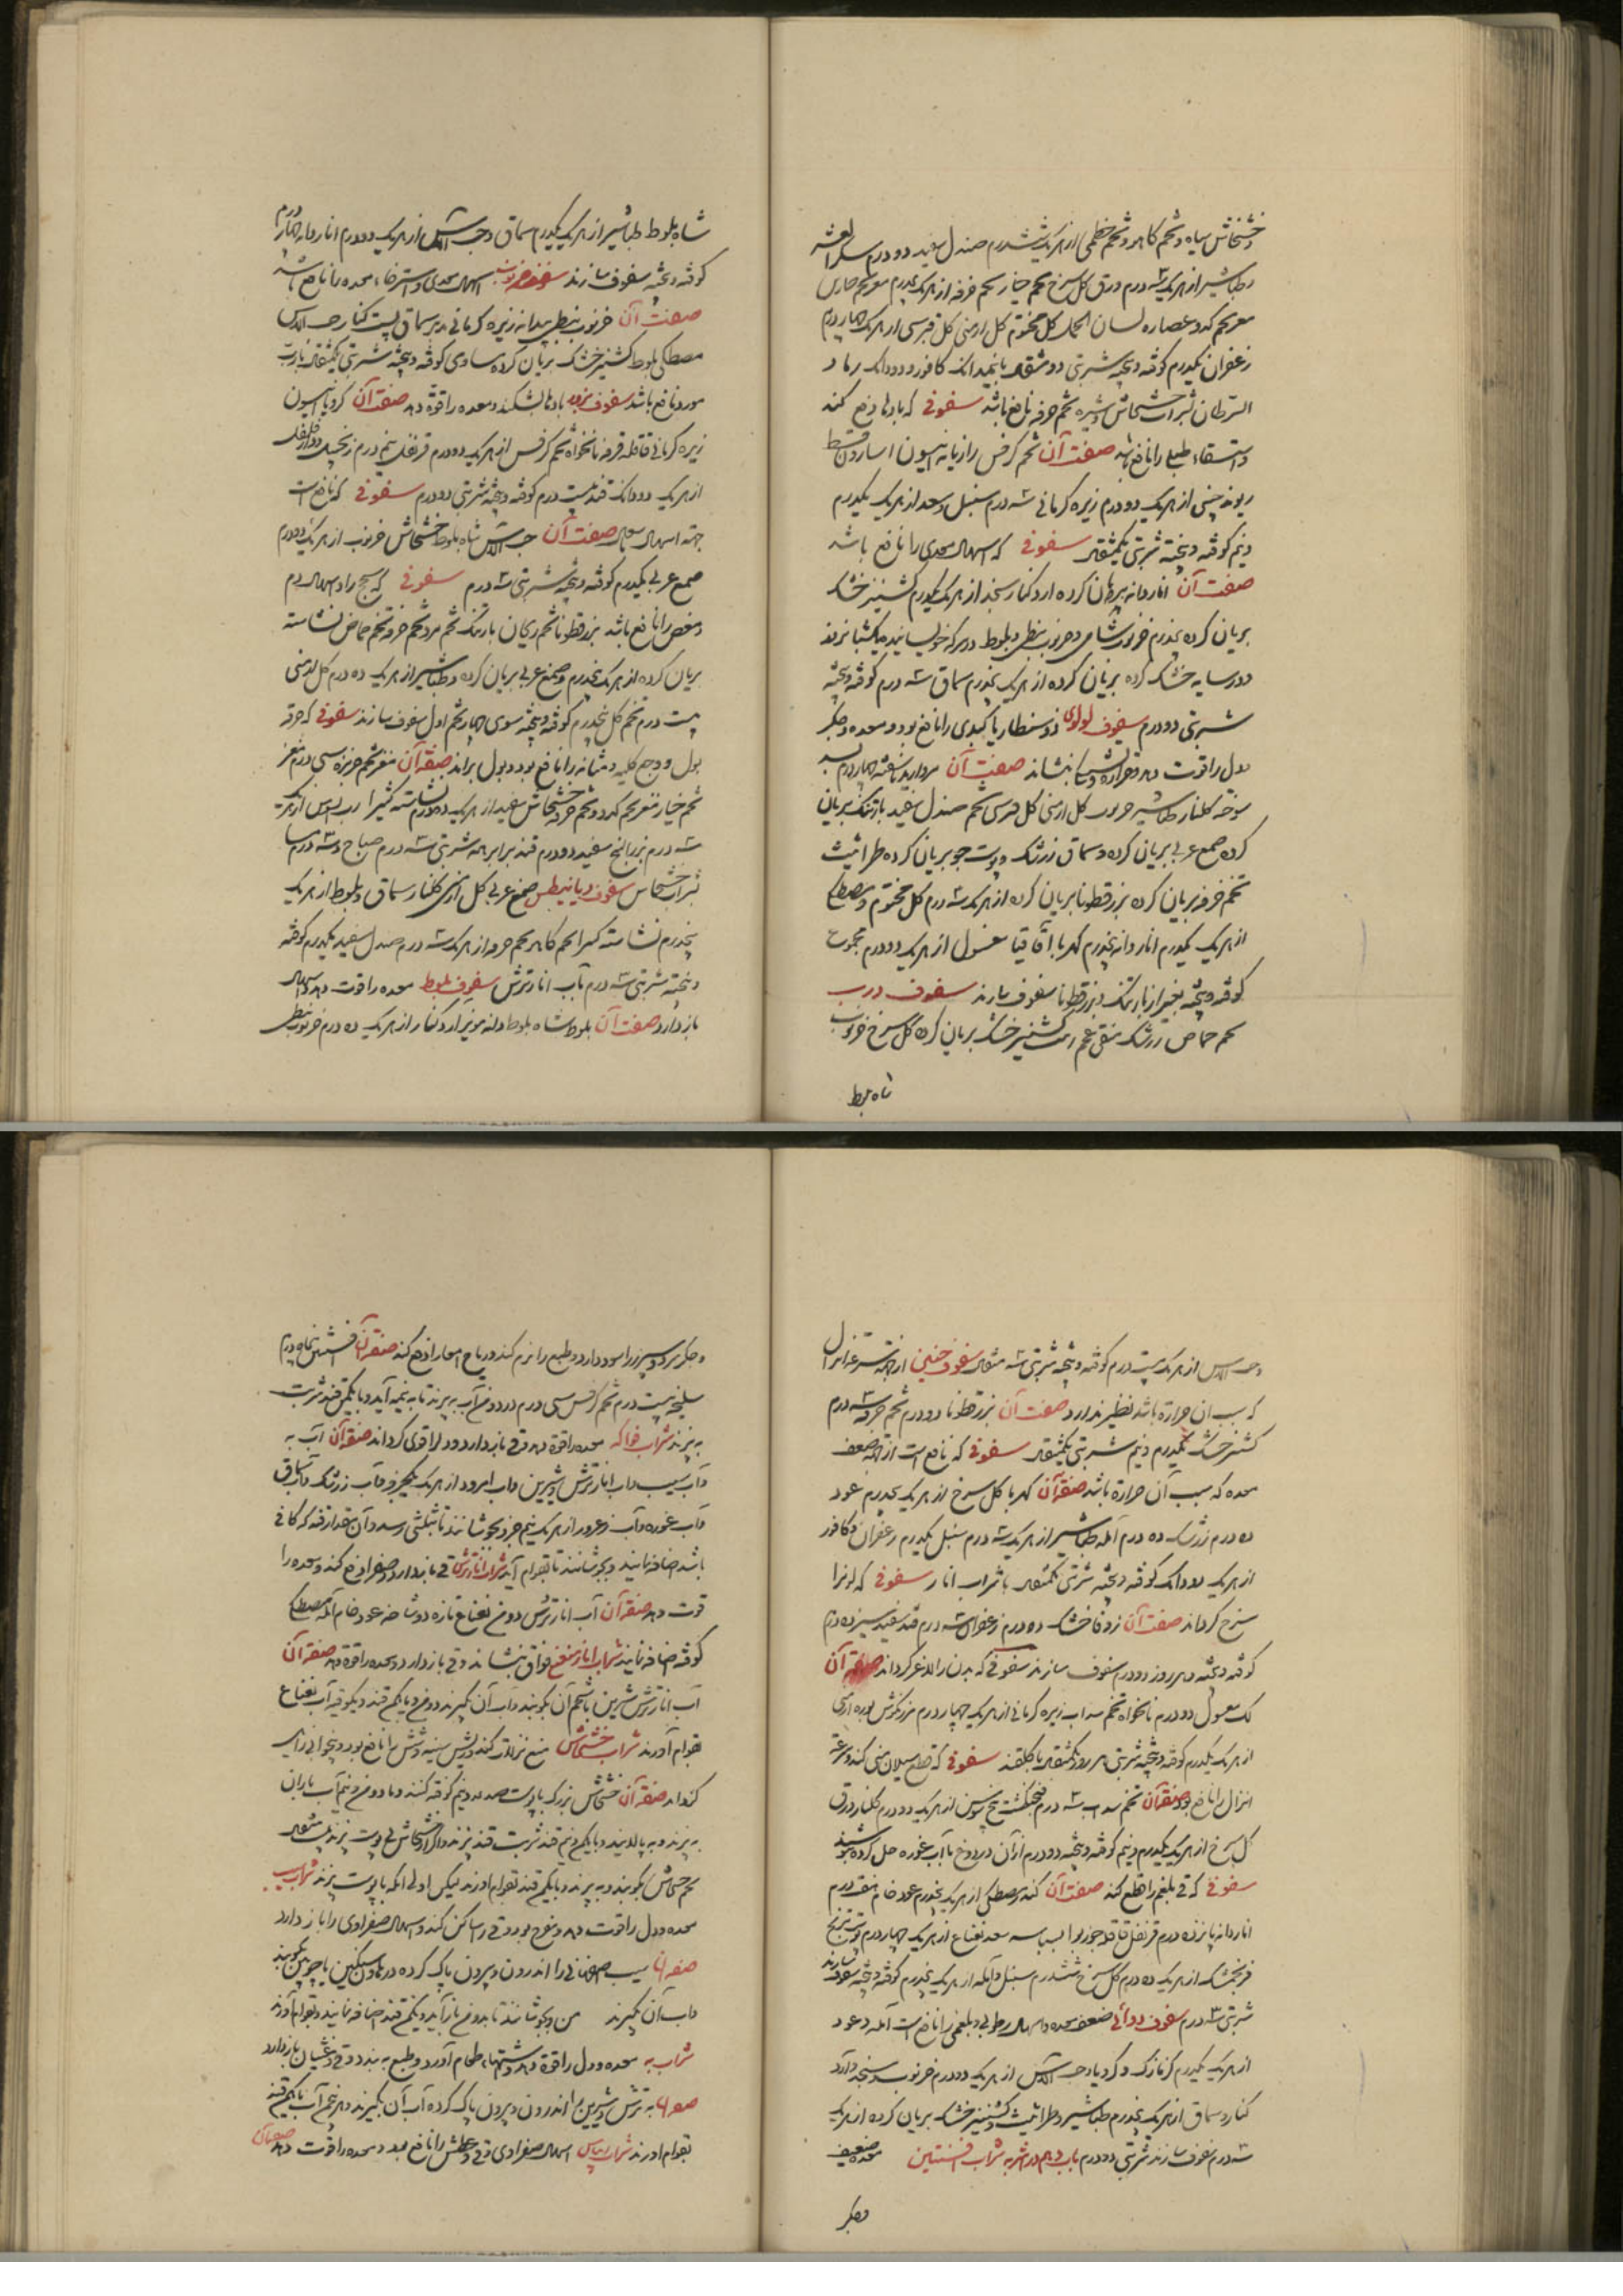 خشخاش سیاه و تخم کاهو و تخم خطمی از هر یک شش درم صندل سفید دو درم
و طباشیر از هر یک سه درم ورق کل سرخ تخم خیار تخم خرفه از هر یک پنجدرم مغز تخم
مغز تخم کدو عصاره لسان الحمل کل مختوم کل ارمنی کل قبرسی از هر یک چهار درم
زعفران یکدرم کوفته و بیخته شربتی دو مثقال با نیمدانک کافور و دو دانک رماد
السرطان بشراب خشخاش و شیره تخم خرفه نافع باشد سفوفی که بادها دفع کند
و استسقاء طبلی را نافع باشد صفت آن تخم کرفس رازیانه انیسون اسارون قسط
ریوند چینی از هر یک دو درم زیره کرمانی سه درم سنبل و سعد از هر یک یکدرم
و نیم کوفته و بیخته شربتی یکمثقال سفوفی که اسهال معدی را نافع باشد
صفت آن اناردانه بریان کرده آرد کنار سنجد از هر یک یکدرم کشنیز خشک
بریان کرده پنجدرم خرنوب شامی و خرنوب نبطی و بلوط در سرکه خویسانیده یکشبانروز
و در سایه خشک کرده بریان کرده از هر یک پنجدرم سماق سه درم کوفته و بیخته
شربتی دو درم سفوف لولوی ذوسنطاریا کبدی را نافع بود و معده و جکر
و دل را قوت دهد و حرارة بنشاند صفت آن مروارید ناسفته چهار درم بسد
سوخته کلنار طباشیر کل ارمنی کل قبرسی تخم صندل سفید بارتنک بریان
کرده صمغ عربی بریان کرده و سماق زرشک و پوست جو بریان کرده طراثیث
تخم خرفه بریان کرده بزرقطونا بریان کرده از هر یک سه درم کل مختوم و مصطکی
از هر یک یکدرم اناردانه پنجدرم کهربا اقاقیا مغسول از هر یک دو درم مجموع
کوفته و بیخته بغیر از بارتنک و بزرقطونا سفوف سازند سفوف درب
تخم حماض زرشک منقی کشنیز خشک بریان کرده کل سرخ خرنوب
شاه بلوط
شاه بلوط طباشیر از هر یک یکدرم سماق و حب الآس از هر یک دو درم اناردانه چهار درم
کوفته و بیخته سفوف سازند سفوف خرنوب اسهال معدی و استرخاء معده را نافع باشد
صفت آن خرنوب نبطی بیدانه زیره کرمانی مدبر سماق پست کنار حب الآس
مصطکی بلوط کشنیز خشک بریان کرده مساوی کوفته و بیخته شربتی یکمثقال با رب
مورد نافع باشد سفوف بزور بادها بشکند و معده را قوة دهد صفت آن کرویا انیسون
زیره کرمانی قاقله قرفه نانخواه تخم کرفس از هر یک دو درم قرنفل نیم درم زنجبیل دارفلفل
از هر یک دو دانک قند بیست درم کوفته و بیخته شربتی دو درم سفوفی که نافع است
جهة اسهال صفت آن حب الآس شاه بلوط خشخاش خرنوب از هر یک دو درم
صمغ عربی یکدرم کوفته و بیخته شربتی سه درم سفوفی که سحج را و اسهال دم
و مغص را نافع باشد بزرقطونا تخم ریحان بارتنک تخم مرو تخم خرفه تخم حماض نشاسته
بریان کرده از هر یک پنجدرم و صمغ عربی بریان کرده و طباشیر از هر یک ده درم کل ارمنی
بیست درم تخم کل پنجدرم کوفته و بیخته سوی چهار تخم اول سفوف سازند سفوفی که حرقة
بول و وجع کلیه و مثانه را نافع بود و بول براند صفة آن مغز تخم خربزه سی درم مغز
تخم خیار مغز تخم کدو و تخم خرفه خشخاش سفید از هر یک ده درم نشاسته کثیرا رب السوس از هر یک
سه درم بزرالبنج سفید دو درم قند برابر همه شربتی سه درم صباح و سه درم مسا
بشراب خشخاش سفوف دیابیطس صمغ عربی کل ارمنی کلنار سماق و بلوط از هر یک
پنجدرم نشاسته کثیرا تخم کاهو تخم خرفه از هر یک سه درم صندل سفید یکدرم کوفته
و بیخته شربتی سه درم بآب انار ترش سفوف بلوط معده را قوت دهد و اسهال
باز دارد صفت آن بلوط شاه بلوط دانه مویز آرد کنار از هر یک ده درم خرنوب نبطی
و حب الآس از هر یک بیست درم کوفته و بیخته شربتی سه مثقال سفوف جهة سرعة انزال
که سبب آن حرارة باشد نظیر ندارد صفت آن بزرقطونا دو درم تخم خرفه سه درم
کشنیز خشک یکدرم و نیم شربتی یکمثقال سفوفی که نافع است از جهة ضعف
معده که سبب آن حرارة باشد صفة آن کهربا کل سرخ از هر یک پنجدرم عود
ده درم زرشک ده درم آمله طباشیر از هر یک سه درم سنبل یکدرم زعفران و کافور
از هر یک دو دانک کوفته و بیخته شربتی یکمثقال با شراب انار سفوفی که لون را
سرخ کرداند صفت آن زوفا خشک ده درم زعفران سه درم قند سفید سیزده درم
کوفته و بیخته و هر روز دو درم سفوف سازند سفوفی که بدن را لاغر کرداند صفة آن
لک مغسول دو درم نانخواه تخم سداب زیره کرمانی از هر یک چهار درم مرزنکوش بوره ارمنی
از هر یک یکدرم کوفته و بیخته شربتی هر روز یکمثقال با کلقند سفوفی که قطع سیلان منی کند و سرعة
انزال را نافع بود صفة آن تخم سداب سه درم فنجنکشت بیخ سوسن از هر یک دو درم کلنار ورق
کل سرخ از هر یک یکدرم و نیم کوفته و بیخته دو درم از آن در دوغ یا آب غوره حل کرده بنوشند
سفوفی که قی بلغم را قطع کند صفت آن کندر مصطکی از هر یک پنجدرم عود خام هفت درم
اناردانه پانزده درم قرنفل قاقله جوز بوا بسباسه سعد نعناع از هر یک چهار درم پوست ترنج
فرنجمشک از هر یک ده درم کل سرخ ششدرم سنبل و آمله از هر یک پنجدرم کوفته و بیخته سفوف سازند
شربتی سه درم سفوف دوائی ضعف معده و اسهال رطوبی و بلغمی را نافع است آمله و عود
از هر یک یکدرم کزمازک و کرویا و حب الآس از هر یک دو درم خرنوب و سنجد و آرد
کنار و سماق از هر یک پنجدرم طباشیر و طراثیث و کشنیز خشک بریان کرده از هر یک
سه درم سفوف سازند شربتی دو درم باب دهم در اشربه شراب افسنتین معده ضعیف
و جکر
و جکر سرد و سپرز را سود دارد و طبع را نرم کند و ریاح امعا را دفع کند صفة آن افسنتین پنجاه درم
سلیخه بیست درم تخم کرفس سی درم در دو من آب بپزند تا به نیمه آید و با یکمن قند شربت
بپزند شراب فواکه معده را قوة دهد و قی باز دارد و دل را قوی کرداند صفة آن آب به
و آب سیب و آب انار ترش و شیرین و آب امرود از هر یک یکجزو و آب زرشک و آب سماق
و آب غوره و آب زعرور از هر یک نیم جزو بجوشانند تا بثلثی رسد و آن مقدار قند که کافی
باشد اضافه نمایند و بجوشانند تا بقوام آید شراب انار ترش قی باز دارد و صفرا دفع کند و معده را
قوت دهد صفة آن آب انار ترش دو من نعناع تازه دو شاخه عود خام آمله مصطکی
کوفته اضافه نمایند شراب انار منعنع فواق بنشاند و قی باز دارد و معده را قوة دهد صفة آن
آب انار ترش و شیرین با شحم آن بکوبند و آب آن بکیرند دو من و با یکمن قند و یکوقیه آب نعناع
بقوام آورند شراب خشخاش منع نزلات کند و ریش سینه و شش را نافع بود و بیخوابی زایل
کرداند صفة آن خشخاش بزرک با پوست صد عدد نیم کوفته کنند و با دو من و نیم آب باران
بپزند و بپالایند و با یکمن و نیم قند شربت قند پزند و اکر از خشخاش بی پوست پزند بیست مثقال
تخم خشخاش بکوبند و بپزند و با یکمن قند بقوام آورند لیکن اولی آنکه با پوست پزند شراب سیب
معده و دل را قوت دهد و مفرح بود و قی را ساکن کند و اسهال صفراوی را باز دارد
صفة آن سیب اصفهانی را اندرون و بیرون پاک کرده در هاون سنکین با چوبین بکوبند
و آب آن بکیرند من و بجوشانند تا بدو من باز آید و یکمن قند اضافه نمایند و بقوام آورند
شراب به معده و دل را قوة دهد و اشتهاء طعام آورد و طبع ببندد و قی و غثیان باز دارد
صفة آن به ترش و شیرین را اندرون و بیرون پاک کرده آب آن بکیرند و هر پنجمن آب با یکمن قند
بقوام آورند شراب ریباس اسهال صفراوی و قی و عطش را نافع بود و معده را قوت دهد صفة آن